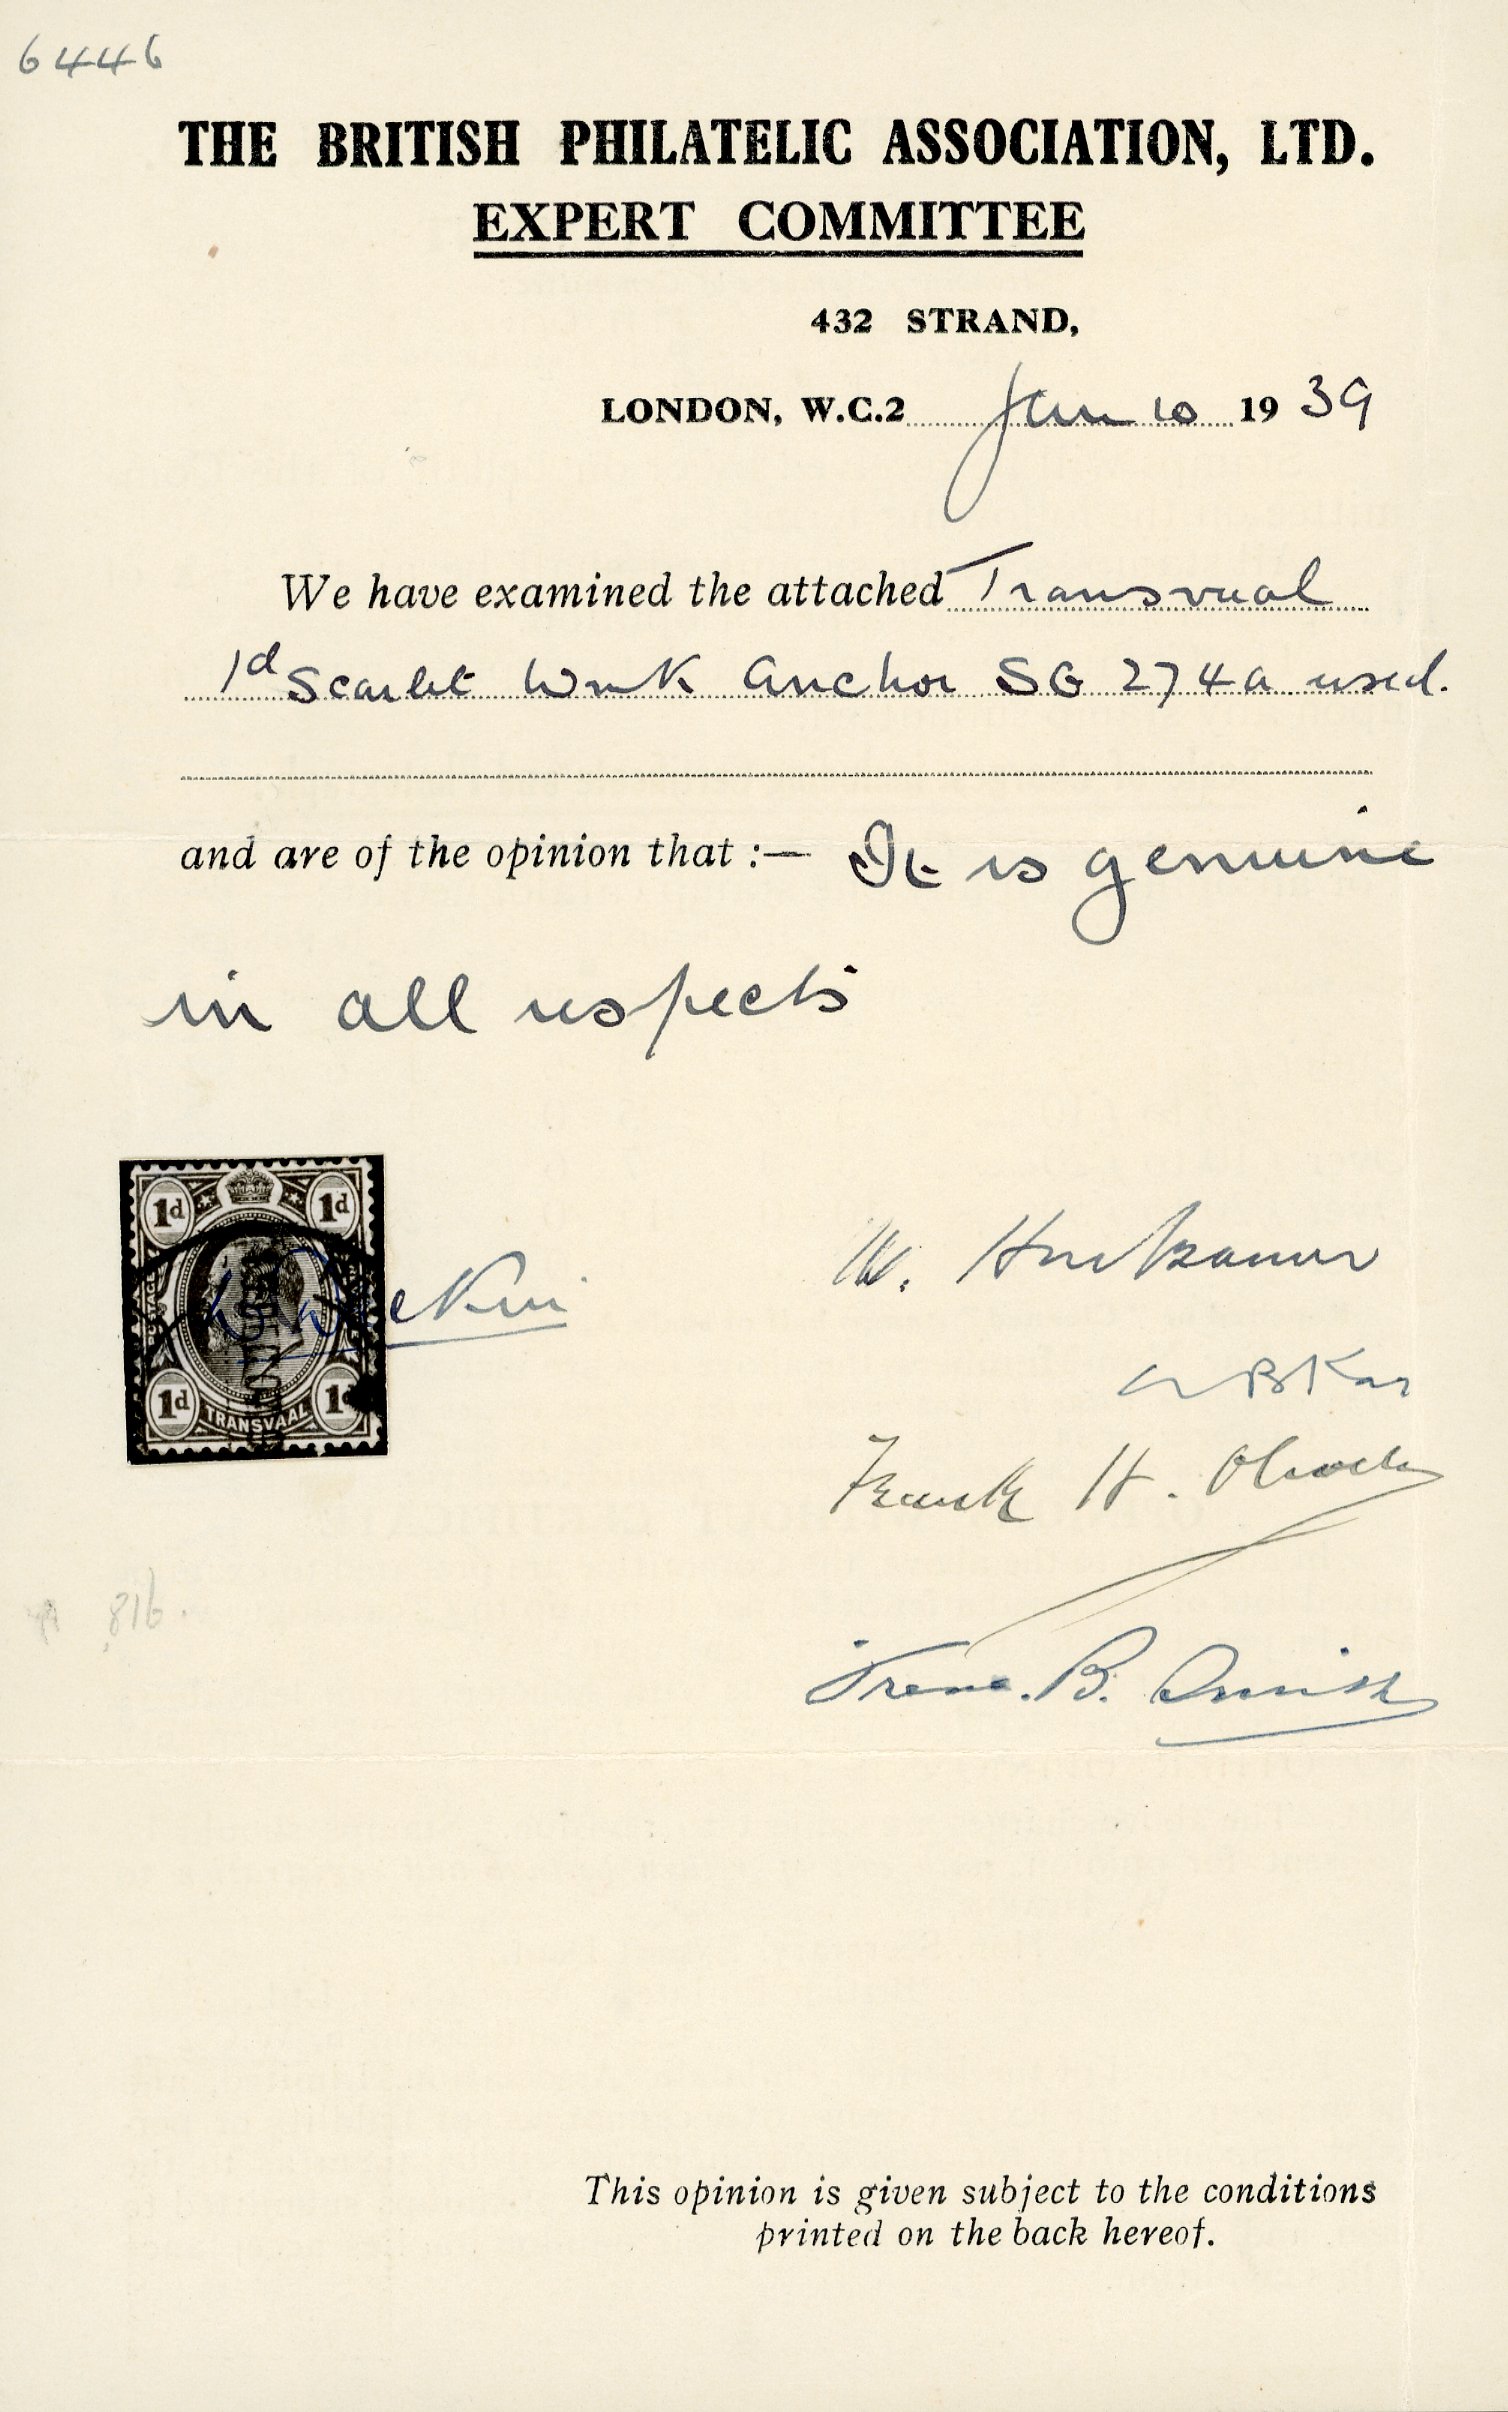 6446
THE BRITISH PHILATELIC ASSOCIATION, LTD.
EXPERT COMMITTEE
432 STRAND,
LONDON, W.C.2 Jan 10 1939
We have examined the attached Transvaal
1d Scarlet Wmk Anchor SG 274a used.
and are of the opinion that :— It is genuine
in all respects
1d 1d
POSTAGE
1d TRANSVAAL 1d
W.
Frank H.
Irene. B.
816.
This opinion is given subject to the conditions
printed on the back hereof.